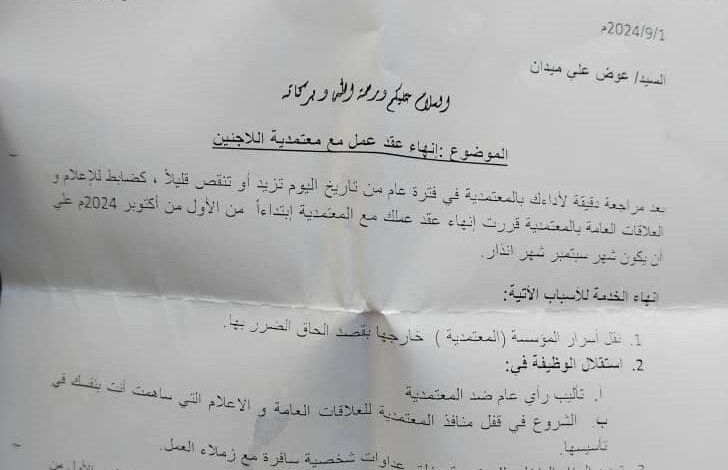 2024/9/1م
السيد/ عوض علي ميدان
السلام عليكم ورحمة الله وبركاته
الموضوع :إنهاء عقد عمل مع معتمدية اللاجئين
بعد مراجعة دقيقة لأداءك بالمعتمدية في فترة عام من تاريخ اليوم تزيد أو تنقص قليلاً ، كضابط للإعلام و
العلاقات العامة بالمعتمدية قررت إنهاء عقد عملك مع المعتمدية إبتداءاً من الأول من أكتوبر 2024م على
أن يكون شهر سبتمبر شهر انذار.
إنهاء الخدمة للأسباب الأتية:
1. نقل أسرار المؤسسة (المعتمدية ) خارجها بقصد الحاق الضرر بها.
2. استقلال الوظيفة في:
أ. تأليب رأي عام ضد المعتمدية
ب. الشروع في قفل منافذ المعتمدية للعلاقات العامة و الاعلام التي ساهمت أنت بنفسك في
تأسيسها.
عداوات شخصية سافرة مع زملاء العمل.